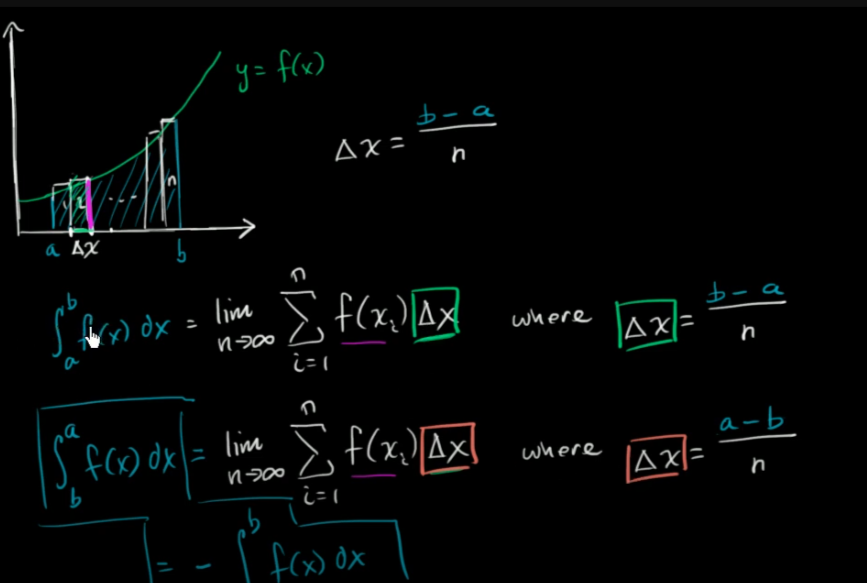 y = f(x)
Δx = (b - a)/n
i
n
...
a Δx b
∫_a^b f(x) dx = lim_{n→∞} ∑_{i=1}^n f(x_i) Δx where Δx = (b - a)/n
∫_b^a f(x) dx = lim_{n→∞} ∑_{i=1}^n f(x_i) Δx where Δx = (a - b)/n
= - ∫^b f(x) dx